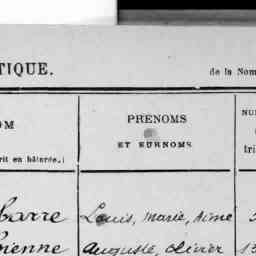 TIQUE.
de la Nom
OM
PRÉNOMS
NU
ET SURNOMS
rit en bâtarde.)
tri
barre Louis, Marie, Aimé
ienne Auguste, Olivier 13